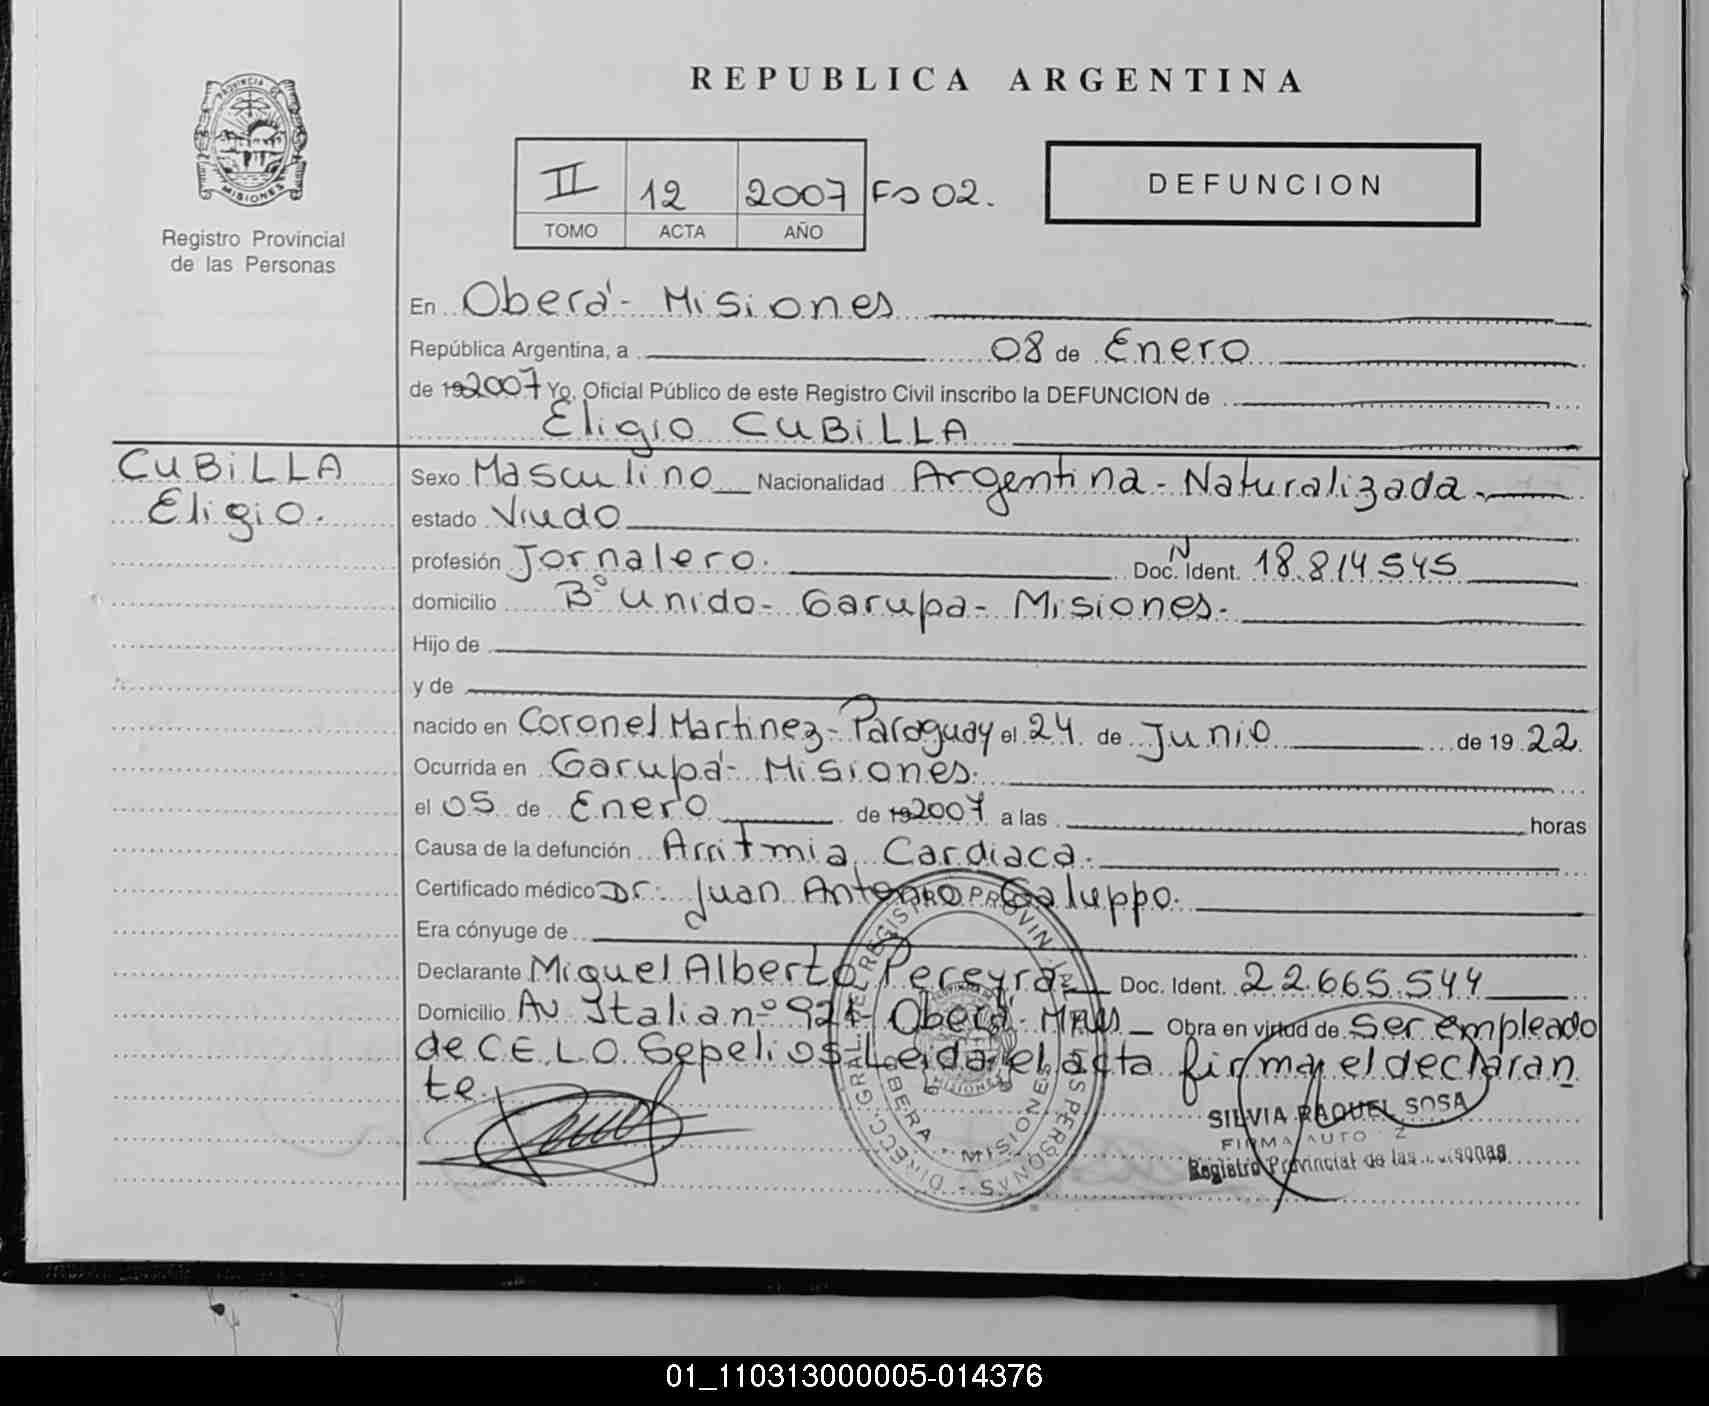 REPUBLICA ARGENTINA
PROVINCIA DE
MISIONES
Registro Provincial
de las Personas
II 12 2007 Fo 02.
TOMO ACTA AÑO
DEFUNCION
En Oberá - Misiones
República Argentina, a 08 de Enero
de 192007 Yo, Oficial Público de este Registro Civil inscribo la DEFUNCION de
Eligio CUBILLA
CUBILLA
Eligio.
Sexo Masculino Nacionalidad Argentina - Naturalizada.
estado Viudo
profesión Jornalero. Doc. N Ident. 18.814545
domicilio Bº Unido - Garupa - Misiones.
Hijo de
y de
nacido en Coronel Martinez - Paraguay el 24 de Junio de 19 22.
Ocurrida en Garupá - Misiones.
el 05 de Enero de 192007 a las horas
Causa de la defunción Arritmia Cardiaca.
Certificado médico Dr: Juan Antonio Galuppo.
Era cónyuge de
Declarante Miguel Alberto Pereyra Doc. Ident. 22.665.544
Domicilio Av Italia nº 921 - Oberá - Mnes Obra en virtud de Ser empleado
de C.E.L.O. Sepelios. Leida el acta firma el declaran
te.
DIRECC. GRAL. DE REGISTRO PROVINCIAL DE LAS PERSONAS
OBERA - MISIONES
MISIONES
SILVIA RAQUEL SOSA
FIRMA AUTO
Registro Provincial de las Personas
01_110313000005-014376